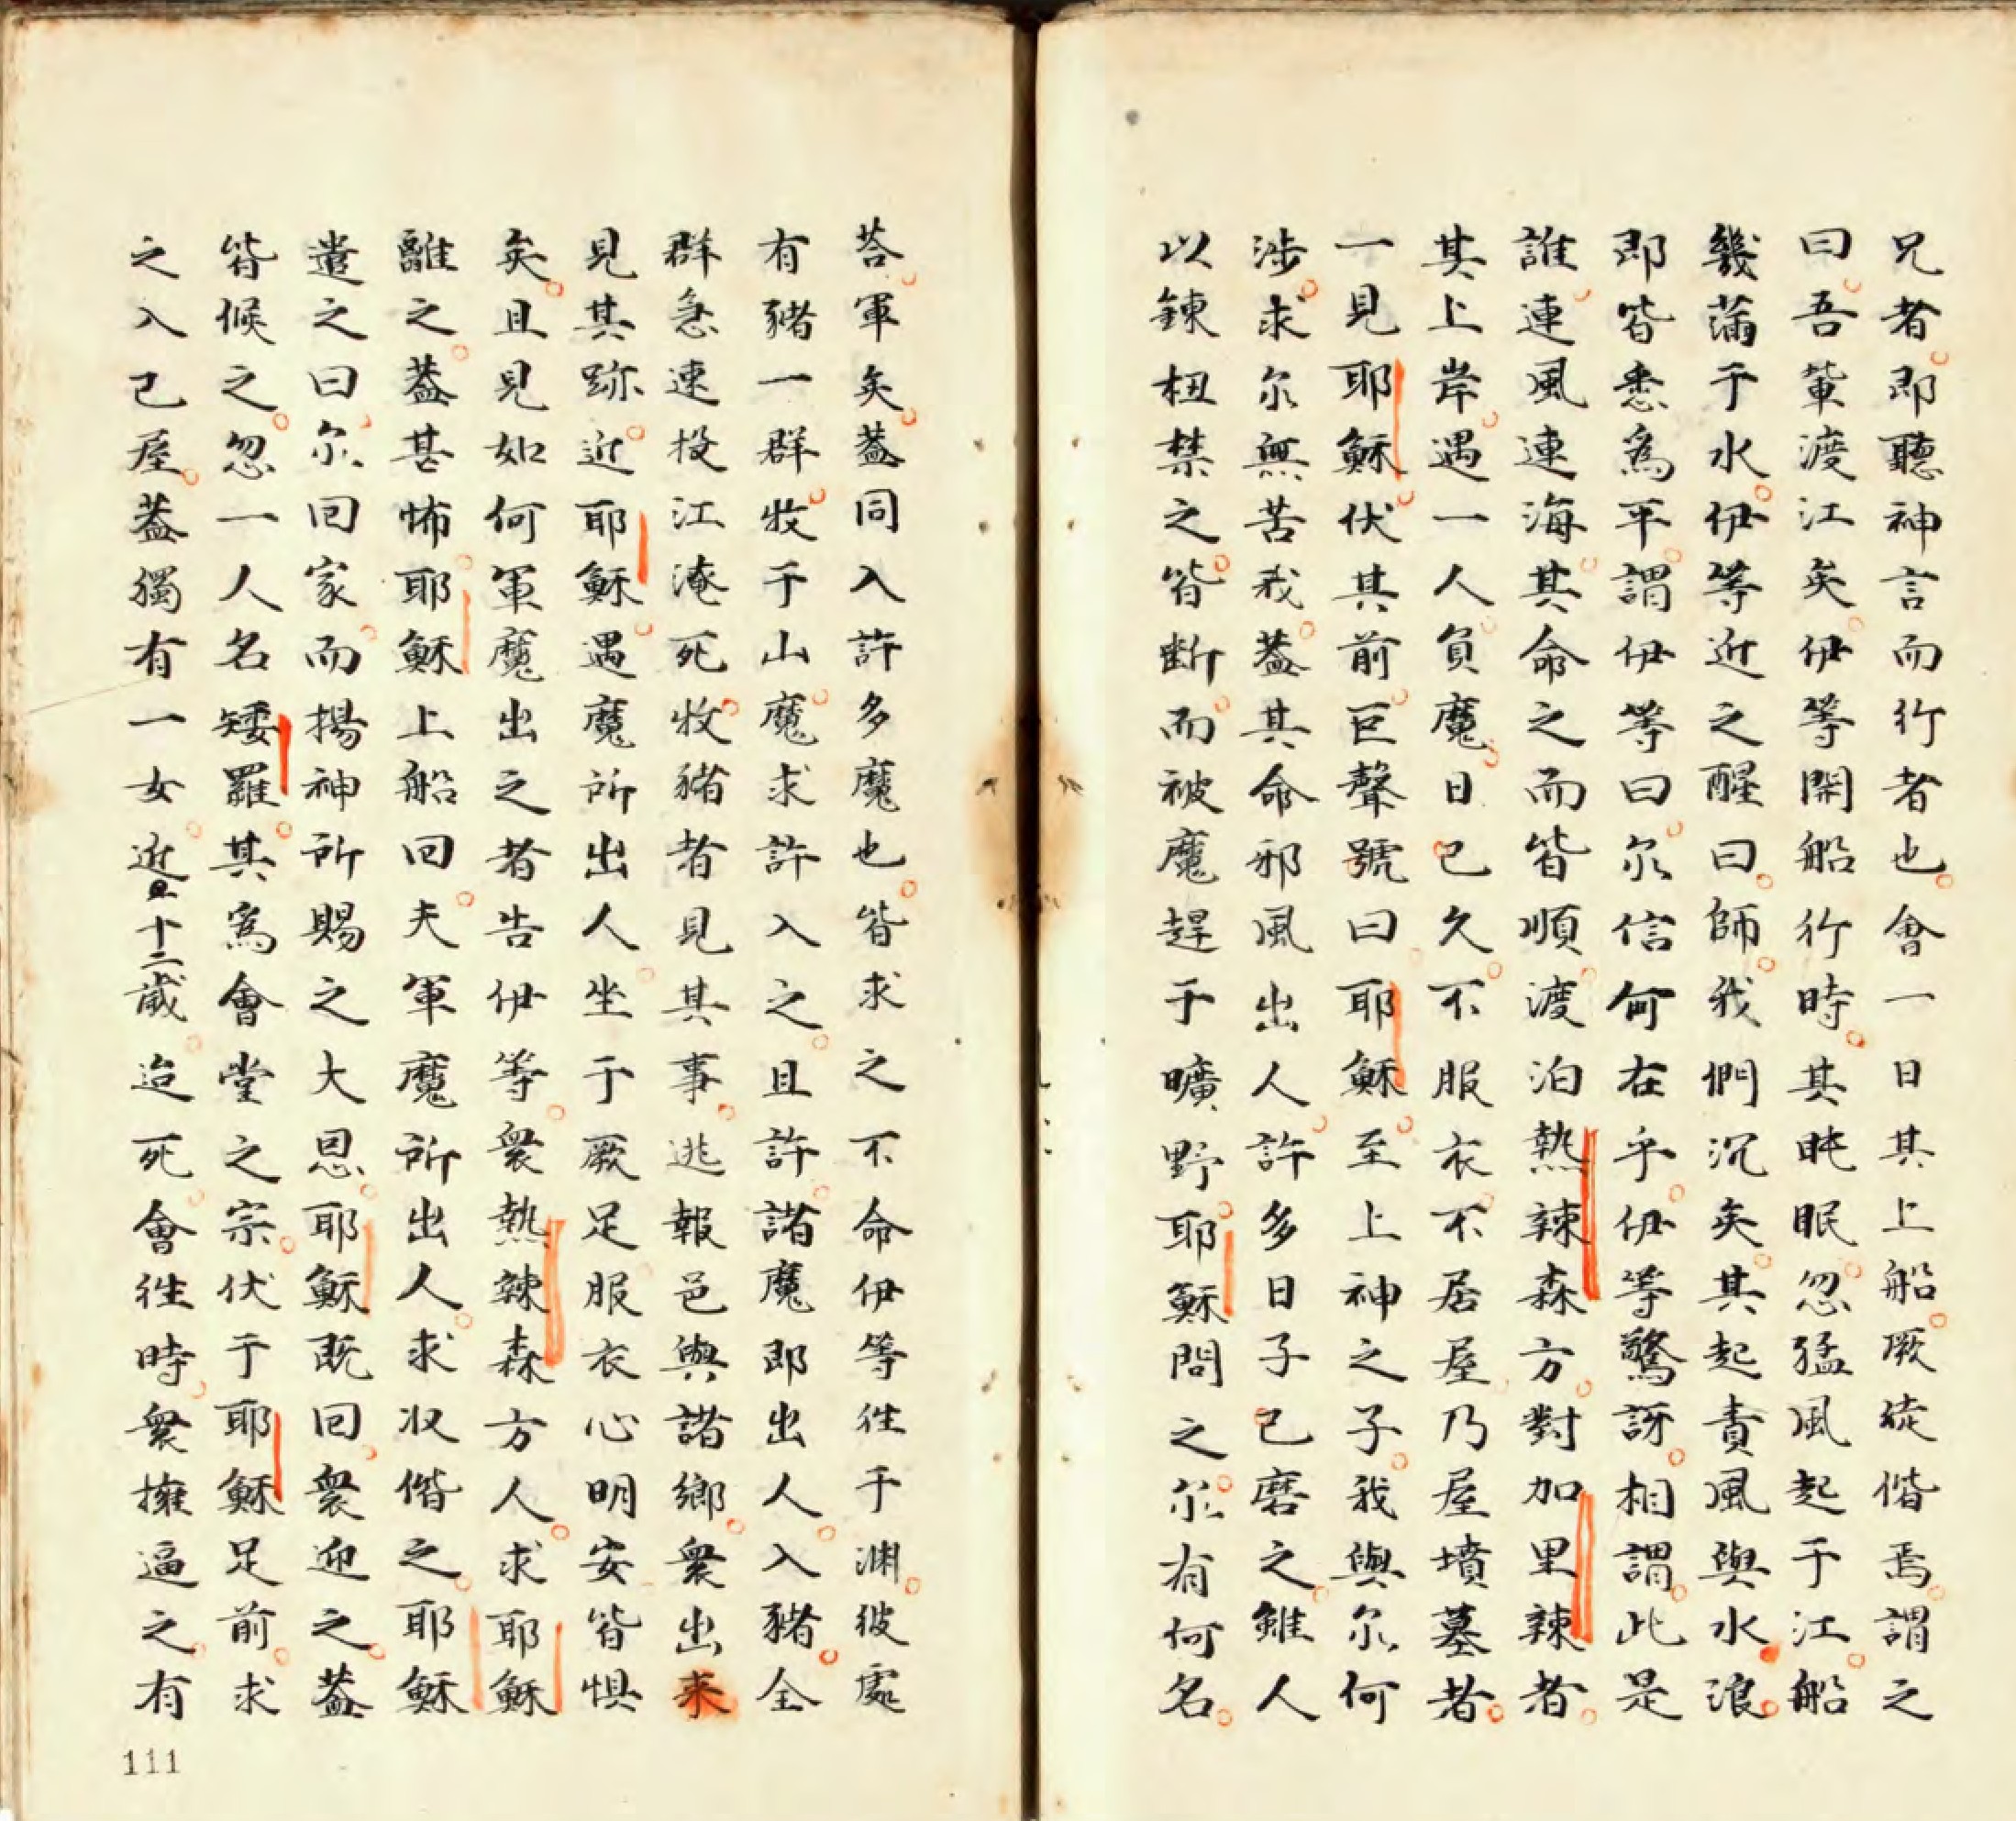 兄者。即聽神言而行者也。會一日其上船。厥徒偕焉。謂之
曰。吾輩渡江矣。伊等開船行時。其盹眠。忽猛風起于江。船
幾滿于水。伊等近之醒曰。師。我們沉矣。其起責風與水浪。
即皆悉為平。謂伊等曰。尔信何在乎。伊等驚訝。相謂。此是
誰。連風連海。其命之而皆順。渡泊熱辣森方。對加里辣者。
其上岸。遇一人負魔。日已久。不服衣。不居屋。乃屋墳墓者。
一見耶穌。伏其前。巨聲號曰。耶穌。至上神之子。我與尔何
涉。求尔無苦我。蓋其命邪風出人。許多日子已磨之。雖人
以鍊杻禁之。皆斷。而被魔趕于曠野。耶穌問之。尔有何名。
荅。軍矣。蓋同入許多魔也。皆求之不命伊等徃于渊。彼處
有豬一群。牧于山。魔求許入之。且許。諸魔即出人。入豬。全
群急速投江淹死。牧豬者見其事。逃報邑與諸鄉。衆出来
見其跡。近耶穌。遇魔所出人。坐于厥足服衣心明安。皆惧
矣。且見如何軍魔出之者。告伊等。衆熱辣森方人。求耶穌
離之。蓋甚怖。耶穌上船回。夫軍魔所出人。求收偕之。耶穌
遣之曰。尔回家。而揚神所賜之大恩。耶穌既回。衆迎之。蓋
皆候之。忽一人名矮羅。其為會堂之宗。伏于耶穌足前。求
之入己屋。蓋獨有一女。近十二歲。迨死。會徃時。衆擁逼之。有
111